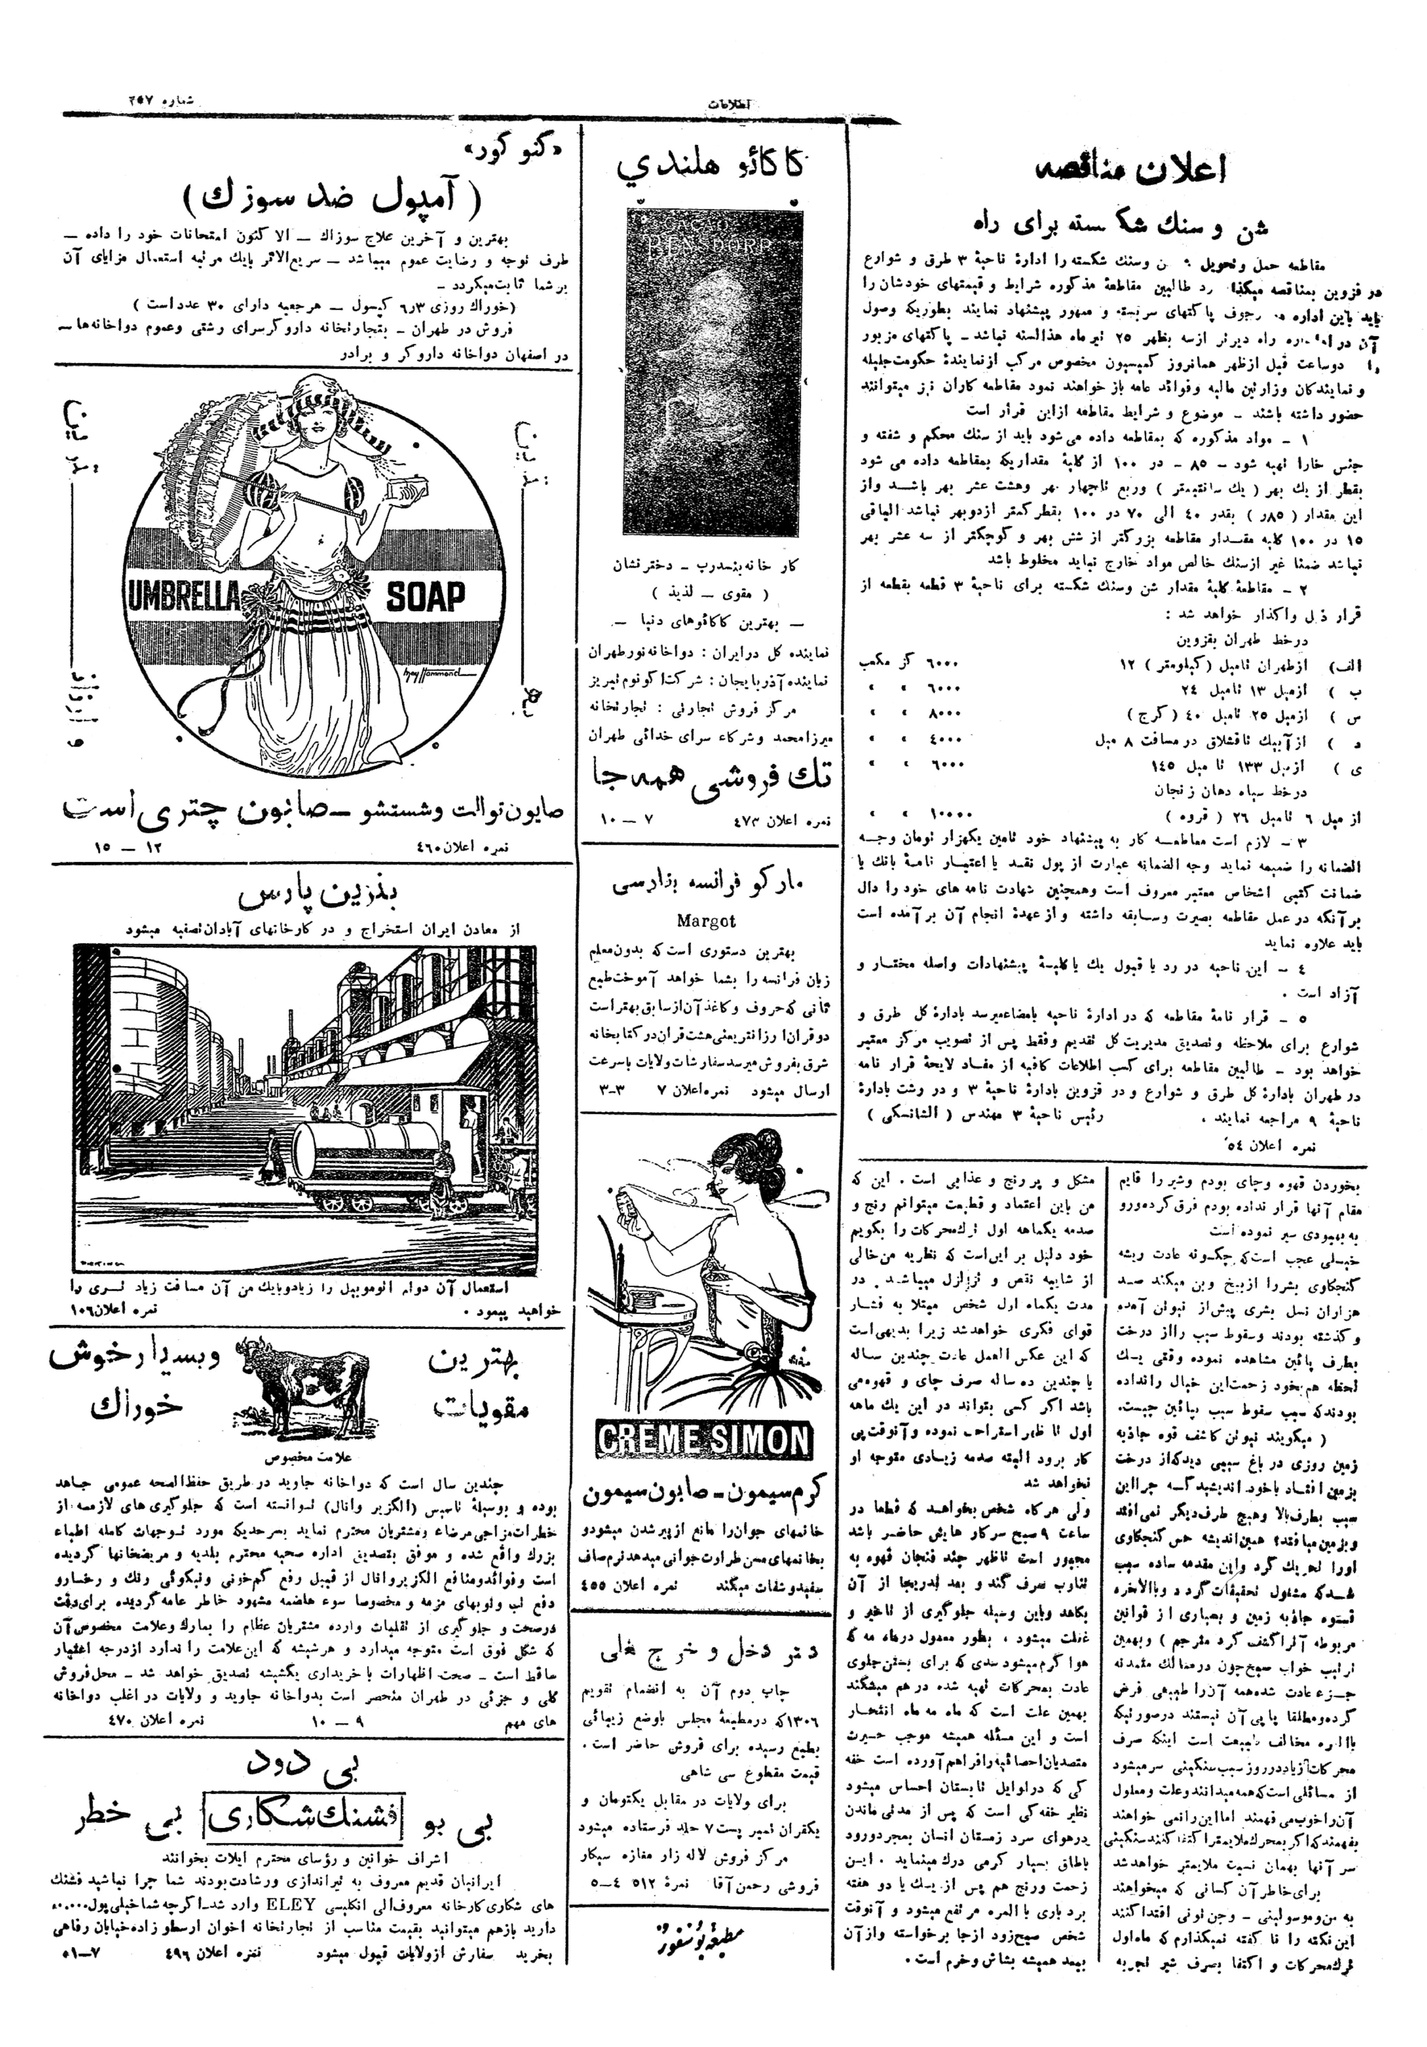 شماره ۲۵۷
اطلاعات
اعلان مناقصه
شن و سنك شكسته برای راه
مقاطعه حمل وتحویل شن وسنك شكسته را ادارۀ ناحیۀ ۳ طرق و شوارع
در قزوین بمناقصه میگذارد طالبین مقاطعۀ مذكوره شرایط و قیمتهای خودشان را
باید باین اداره رجوع پاكتهای سربسته و ممهور پیشنهاد نمایند بطوریكه وصول
آن در اداره راه دیرتر ازسه بظهر ۲۵ تیرماه هذاالسنه نباشد ـ پاكتهای مزبور
را دوساعت قبل ازظهر همانروز كمیسیون مخصوص مركب ازنمایندۀ حكومت جلیله
و نمایندكان وزارتین مالیه وفوائد عامه باز خواهند نمود مقاطعه كاران نیز میتوانند
حضور داشته باشند ـ موضوع و شرایط مقاطعه ازاین قرار است
۱ ـ مواد مذكوره كه بمقاطعه داده می‌شود باید از سنك محكم و شفته و
جنس خارا تهیه شود ـ ۸۵ ـ در ۱۰۰ از كلیۀ مقداریكه بمقاطعه داده می شود
بقطر از یك بهر ( یك سانتیمتر ) وربع تاچهار بهر وهشت عشر بهر باشد واز
این مقدار ( ۸۵ر ) بقدر ۴۰ الی ۷۰ در ۱۰۰ بقطر كمتر ازدوبهر نباشد الباقی
۱۵ در ۱۰۰ كلیه مقدار مقاطعه بزركتر از شش بهر و كوچكتر از سه عشر بهر
نباشد ضمناً غیر ازسنك خالص مواد خارج نباید مخلوط باشد
۲ ـ مقاطعۀ كلیۀ مقدار شن وسنك شكسته برای ناحیۀ ۳ قطعه بقطعه از
قرار ذیل واكذار خواهد شد :
درخط طهران بقزوین
الف) ازطهران تامیل (كیلومتر ) ۱۲ ۶۰۰۰ گز مكعب
ب ) ازمیل ۱۳ تامیل ۲۴ ۶۰۰۰ » »
س ) ازمیل ۲۵ تامیل ۴۰ (كرج ) ۸۰۰۰ » »
د ) از آبیك تاقشلاق در مسافت ۸ میل ۴۰۰۰ » »
ی ) ازمیل ۱۳۳ تا میل ۱۴۵ ۶۰۰۰ » »
درخط سیاه دهان زنجان
از میل ۶ تامیل ۲۶ ( قروه ) ۱۰۰۰۰ » »
۳ ـ لازم است مقاطعه كار به پیشنهاد خود تامین یكهزار تومان وجه
الضمانه را ضمیمه نماید وجه الضمانه عبارت از پول نقد یا اعتبار نامۀ بانك یا
ضمانت كتبی اشخاص معتبر معروف است وهمچنین شهادت نامه های خود را دال
برآنكه در عمل مقاطعه بصیرت وسابقه داشته و از عهدۀ انجام آن برآمده است
باید علاوه نماید
٤ ـ این ناحیه در رد یا قبول یك یا كلیۀ پیشنهادات واصله مختار و
آزاد است .
۵ ـ قرار نامۀ مقاطعه كه در ادارۀ ناحیه بامضاء میرسد بادارۀ كل طرق و
شوارع برای ملاحظه وتصدیق مدیریت كل تقدیم وفقط پس از تصویب مركز معتبر
خواهد بود ـ طالبین مقاطعه برای كسب اطلاعات كافیه از مفاد لایحۀ قرار نامه
در طهران بادارۀ كل طرق و شوارع و در قزوین بادارۀ ناحیۀ ۳ و در رشت بادارۀ
ناحیۀ ۹ مراجعه نمایند . رئیس ناحیۀ ۳ مهندس ( آلشانسكی )
نمره اعلان ۵۴
بخوردن قهوه وچای بودم وشیر را قایم
مقام آنها قرار نداده بودم فرق كرده ورو
به بهبودی سیر نموده است
خیلی عجب است كه چكونه عادت ریشه
كنجكاوی بشررا ازبیخ وبن میكند صد
هزاران نسل بشری پیش از نیوتن آمده
و كذشته بودند وسقوط سیب رااز درخت
بطرف پائین مشاهده نموده وقتی یك
لحظه هم بخود زحمت این خیال را نداده
بودند كه سبب سقوط سیب بپائین چیست.
( میگویند نیوتن كاشف قوه جاذبه
زمین روزی در باغ سیبی دید كه از درخت
بزمین افتاد باخود اندیشید كه چرا این
سیب بطرف بالا وهیچ طرف دیگر نمی افتد
وبزمین میافتد؟ همین اندیشه حس كنجكاوی
اورا تحریك كرد واین مقدمه ساده سبب
شد كه مشغول تحقیقات گردد وبالاخره
قستوه جاذبه زمین و بسیاری از قوانین
مربوطه آنرا كشف كرد مترجم ) وبهمین
ترتیب خواب صبح چون در ممالك متمدنه
جزء عادت شده همه آن را طبیعی فرض
كرده ومطلقا پاپی آن نیستند درصورتیكه
بالمره مخالف طبیعت است اینكه صرف
محركات زیاد در روز سبب سنگینی سر میشود
از مسائلی است كه همه میدانند وعلت ومعلول
آن راخوب می فهمند اما این رانمی خواهند
بفهمند كه اكر بمحرك ملایمتر اكتفا كنند سنگینی
سر آنها بهمان نسبت ملایمتر خواهد شد
برای خاطر آن كسانی كه میخواهند
به من وموسولینی ـ وجن تونی اقتدا كنند
این نكته را نا كفته نمیگذارم كه ماه اول
ترك محركات و اكتفا بصرف شیر تجربه
مشكل و پر رنج و عذابی است . این كه
من باین اعتماد و قطعیت میتوانم رنج و
صدمه یكماهه اول ترك محركات را بگویم
خود دلیل بر این است كه نظریه من خالی
از شایبه نقص و تزلزل میباشد . در
مدت یكماه اول شخص مبتلا به فشار
قوای فكری خواهد شد زیرا بدیهی است
كه این عكس العمل عادت چندین ساله
یا چندین ده ساله صرف چای و قهوه می
باشد اكر كسی بتواند در این یك ماهه
اول تا ظهر استراحت نموده و آنوقت پی
كار برود البته صدمه زیادی متوجه او
نخواهد شد
ولی هركاه شخص بخواهد كه قطعا در
ساعت ۹ صبح سر كار هایش حاضر باشد
مجبور است تاظهر چند فنجان قهوه به
تناوب صرف كند و بعد بتدریجا از آن
بكاهد وباین وسیله جلوگیری از تاخیر و
غفلت میشود ، بطور معمول درماه مه كه
هوا گرم میشود سدی كه برای بستن جلوی
عادت بمحركات تهیه شده در هم میشكند
بهمین علت است كه ماه مه ماه انتحار
است و این مسئله همیشه موجب حیرت
متصدیان احصائیه رافراهم آورده است خفه
گی كه دراوایل تابستان احساس میشود
نظیر خفه گی است كه پس از مدتی ماندن
درهوای سرد زمستان انسان بمجردورود
باطاق بسیار گرمی درك مینماید . این
زحمت ورنج هم پس از یك یا دو هفته
برد باری بالمره مرتفع میشود و آنوقت
شخص صبح زود ازجا برخواسته وازآن
ببعد همیشه بشاش وخرم است .
كاكائو هلندي
CACAO
BENSDORP
كار خانه بنسدرپ ـ دختر نشان
( مقوی ـ لذیذ )
ـ بهترین كاكائوهای دنیا ـ
نماینده كل درایران : دواخانه نورطهران
نماینده آذربایجان : شركت اكونوم تبریز
مركز فروش تجارتی : تجارتخانه
میرزامحمد وشركاء سرای خدائی طهران
تك فروشی همه جا
نمره اعلان ۴۷۳ ۷ ـ ۱۰
مارگو فرانسه بفارسی
Margot
بهترین دستوری است كه بدون معلم
زبان فرانسه را بشما خواهد آموخت طبع
ثانی كه حروف و كاغذ آن از سابق بهتر است
دوقران ارزانتر یعنی هشت قران در كتابخانه
شرق بفروش میرسد سفارشات ولایات باسرعت
ارسال میشود نمره اعلان ۷ ۳ـ۳
CRÈME SIMON
كرم سیمون ـ صابون سیمون
خانمهای جوان را مانع از پیر شدن میشودو
بخانمهای مسن طراوت جوانی میدهد نرم صاف
سفیدو شفات میكند نمره اعلان ۴۵۵
دفتر دخل و خرج بغلی
چاپ دوم آن به انضمام تقویم
۱۳۰۶ كه درمطبعۀ مجلس باوضع زیبائی
بطبع رسیده برای فروش حاضر است .
قیمت مقطوع سی شاهی
برای ولایات در مقابل یكتومان و
یكقران تمبر پست ۷ جلد فرستاده میشود
مركز فروش لاله زار مغازه سیگار
فروشی رحمن آقا نمرۀ ۵۱۲ ٤ـ۵
مطبعۀ بوسفور
«گنو كور»
( آمپول ضد سوزك )
بهترین و آخرین علاج سوزاك ـ الا كنون امتحانات خود را داده ـ
طرف توجه و رضایت عموم میباشد ـ سریع‌الاثر بایك مرتبه استعمال مزایای آن
برشما ثابت میگردد ـ
(خوراك روزی ۳ر۶ كپسول ـ هرجعبه دارای ۳۰ عدد است )
فروش در طهران ـ بتجارتخانه داروگر سرای رشتی وعموم دواخانه‌ها ـ
در اصفهان دواخانه داروگر و برادر
UMBRELLA SOAP
May Hammond
صابون توالت وشستشو ـ صابون چتری است
نمره اعلان ۴۶۰ ۱۲ ـ ۱۵
بنزین پارس
از معادن ایران استخراج و در كارخانهای آبادان تصفیه میشود
استعمال آن دوام اتوموبیل را زیادوبایك من آن مسافت زیاد تری را
خواهید پیمود . نمره اعلان۱۰۶
بهترین وبسیارخوش
مقویات خوراك
علامت مخصوص
چندین سال است كه دواخانه جاوید در طریق حفظ‌الصحه عمومی جاهد
بوده و بوسیلۀ تاسیس (الگزیر وانال) توانسته است كه جلوگیری های لازمه از
خطرات مزاجی مرضاء ومشتریان محترم نماید بسرحدیكه مورد توجهات كامله اطباء
بزرك واقع شده و موفق بتصدیق اداره صحیه محترم بلدیه و مریضخانها گردیده
است وفوائد ومنافع الگزیروانال از قبیل رفع كم‌خونی ونیكوئی رنك و رخسارو
دفع تب ونوبهای مزمه و مخصوصا سوء هاضمه مشهود خاطر عامه گردیده برای دقت
درصحت و جلوگیری از تقلبات وارده مشتریان عظام را بمارك وعلامت مخصوص آن
كه شكل فوق است متوجه میدارد و هرشیشه كه این علامت را ندارد ازدرجه اعتبار
ساقط است ـ صحت اظهارات با خریداری یكشیشه تصدیق خواهد شد ـ محل فروش
كلی و جزئی در طهران منحصر است بدواخانه جاوید و ولایات در اغلب دواخانه
های مهم ۹ ـ ۱۰ نمره اعلان ۴۷۰
بی دود
بی بو فشنك شكاری بی خطر
اشراف خوانین و رؤسای محترم ایلات بخوانند
ایرانیان قدیم معروف به تیراندازی ورشادت بودند شما چرا نباشید فشنك
های شكاری كارخانه معروف الی انگلیسی ELEY وارد شد ـ اگرچه شما خیلی پول
دارید بازهم میتوانید بقیمت مناسب از تجارتخانه اخوان ارسطو زاده خیابان رفاهی
بخرید سفارش ازولایات قبول میشود نمره اعلان ۴۹۶ ۷ـ۵۱